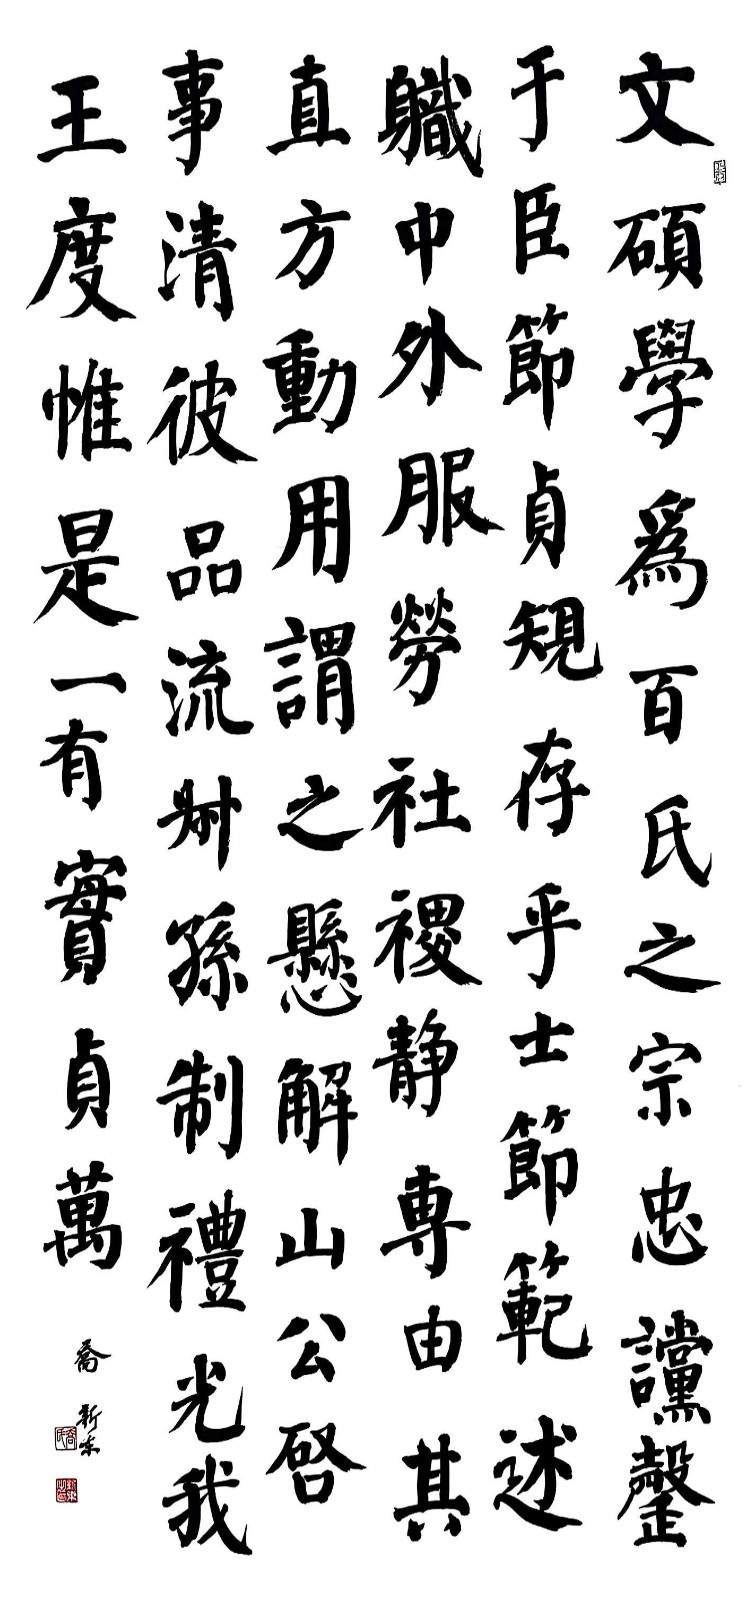 文碩學爲百氏之宗忠讜罄
于臣節貞規存乎士節範述
軄中外服勞社稷静專由其
直方動用謂之懸解山公啓
事清彼品流叔孫制禮光我
王度惟是一有實貞萬
喬新東